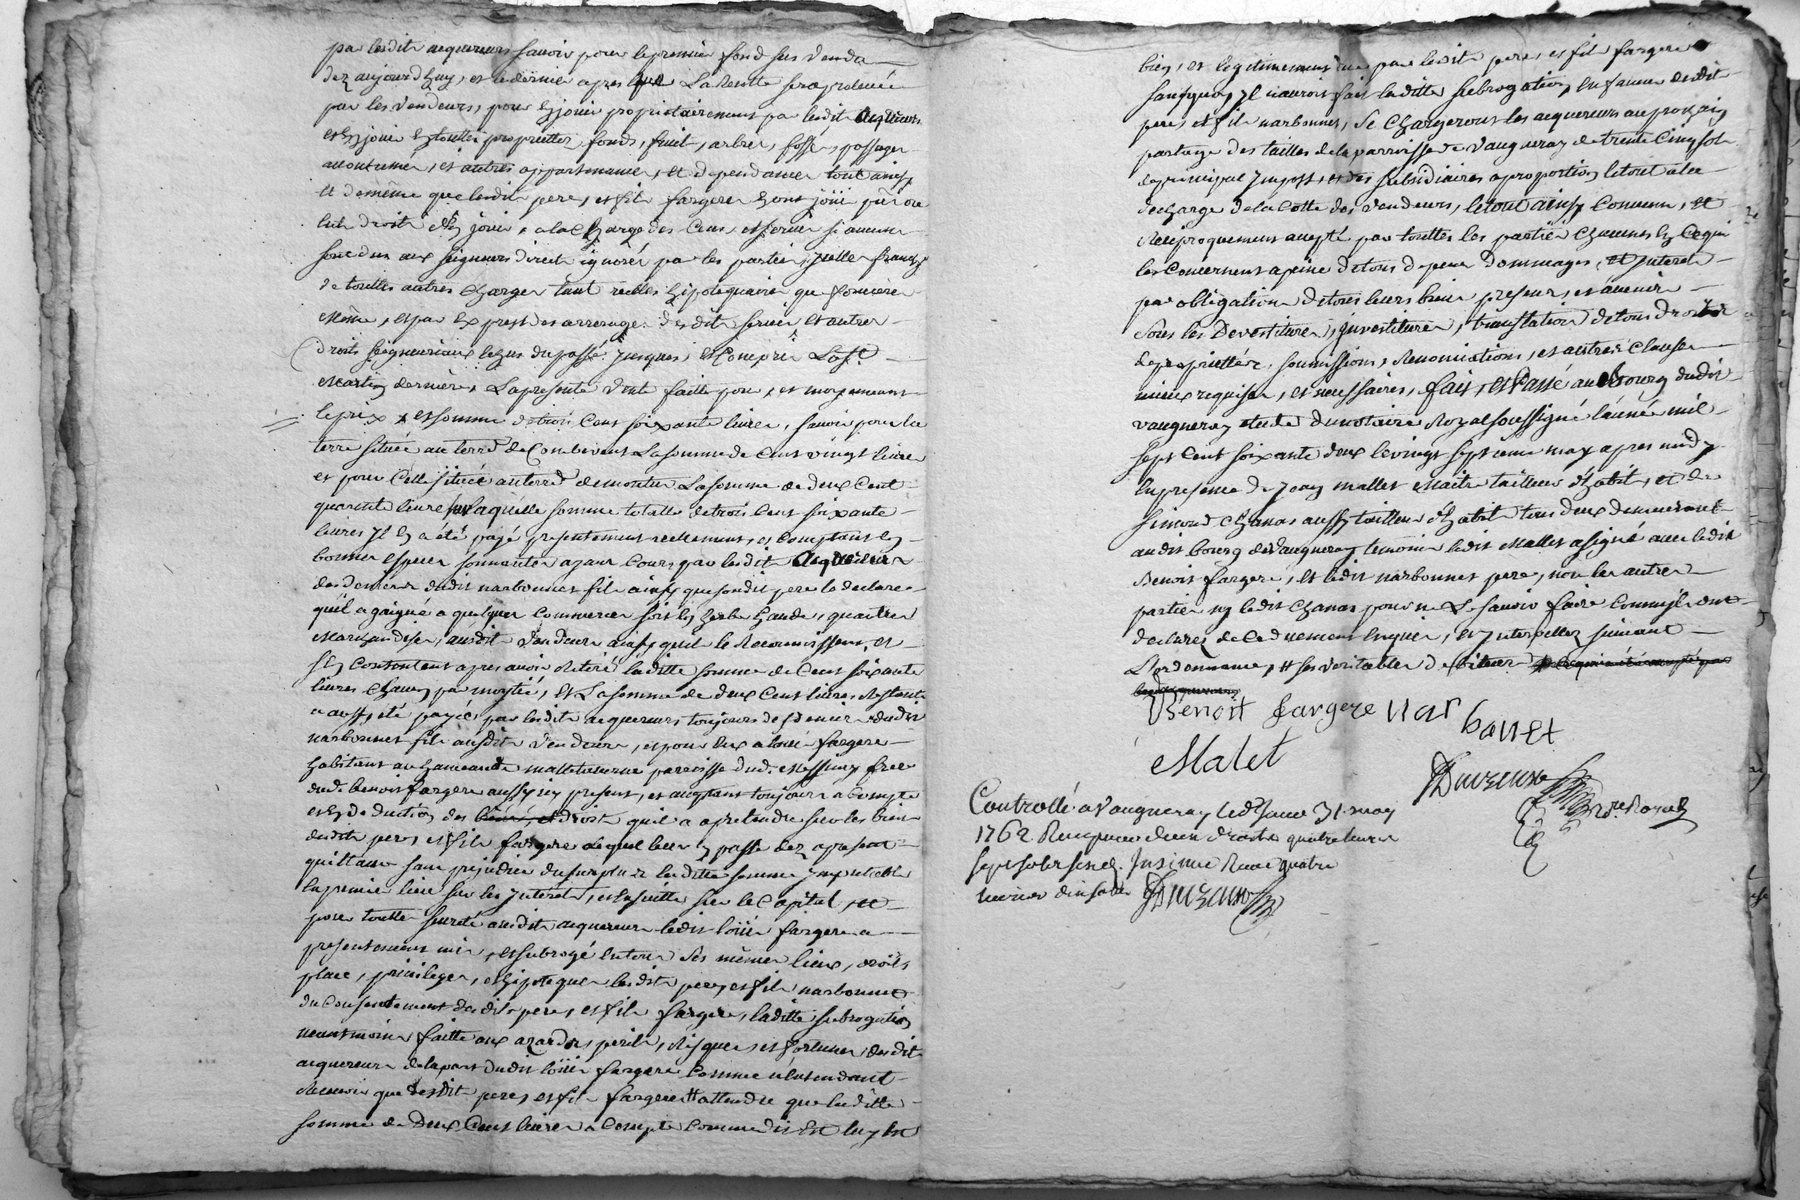 par lesdits acquereurs savoir pour le premier fond sus vendu
dez aujourdhuy, et le dernier apres que la recolte sera prelevée
par les vendeurs, pour jouir proprietairement par lesdits acquereurs
et jouir toutte proprietter, fonds, fruit, arbres, fosses, passages
accoutumés, et autres appartenances, et dependances tout ainsy
et de même que lesdits pere, et fil fargere ont joüi pû ou
dû droit jouir, a la charge des cens, et servis si aucuns
sont dus aux seigneurs direct ignorés par les parties, quitte franc
de touttes autres charges tant réelles hipotequaires que foncieres
même, et par exprest des arrerages desdits servis et autres
droits seigneuriaux legus du passé jusques et compris la St
Martin derniere, la presente vente faitte pour, et moyennant
le prix et somme de trois cent soixante livres, savoir pour la
terre située au terrd de Combevent la somme de cent vingt livres
et pour celle située au terrd de montin la somme de deux cent
quarente livres laquelle somme totalle de trois cent soixante
livres il a été payé presentement reellement, et comptant en
bonnes especes sonnantes ayant cours par lesdits acquereurs
des deniers dudit narbonnet fil ainsy que sondit pere le declare
qu'il a gaigné a quelques commerces soit en herbe
marchandise, ausdits vendeurs ainsy quil le reconnoissent, et
s'en contentent apres avoir retiré laditte somme de cent soixante
livres chacun par moytié, et la somme de deux cent livres restante
a aussy été payée par lesdits acquereurs toujours des deniers dudit
narbonnet fil ausdits vendeurs, et pour eux a loüis fargere
habitant au hameau de parroisse dud. Messimy frere
dud. benoit fargere aussy icy present, et acceptant toujours a compte
et en deduction des droits quil a a pretendre sur les biens
desdits pere, et fil fargere lequel leur en passe dez apresent
quittance sans prejudice du surplus laditte somme imputable
en premier lieu sur les interets, et ensuitte sur le capital, et
pour toutte sureté ausdits acquereurs ledit loüis fargere a
presentement mis, et subrogé en tous ses mêmes lieux, droits
place, privileges, et hipoteques lesdits pere, et fil narbonnet
du consentement desdits pere, et fil fargere, laditte subrogation
neantmoins faitte aux azards, perils, risques, et fortunes, desdits
acquereurs de la part dudit loüis fargere comme n'entendant
recevoir que desdits pere, et fil fargere attendu que laditte
somme de deux cent livres a compte comme dit est luy est
bien, et legitimement due par lesdits pere, et fil fargere
sans quoy il n'auroit fait laditte subrogation, en faveur desdits
pere, et fil narbonnet, se chargeront les acquereurs au prochain
partage des tailles de la parroisse de vaugneray de trente cinq sols
de principal impost, et des subsidiaires a proportion le tout a la
decharge de la cotte des vendeurs, le tout ainsy convenu, et
reciproquement accepté par touttes les parties chacunes en ce qui
les concernent a peine de tous depens dommages, et interets
par obligation de tous leurs biens presents, et avenir
sous les devestitures, investitures, translation de tous droits
de proprietté, soumissions, renonciations, et autres clauses
mieux requises, et necessaires, fait, et passé au bourg dudit
vaugneray etude du notaire Royal soussigné l'année mil
sept cent soixante deux le vingt sept may apres midy
en presence de jean mallet maitre tailleur d'habit, et de
simond chanas aussy tailleur d'habit tous deux demeurant
audit bourg de vaugneray temoins ledit mallet a signé avec ledit
Benoit fargere, et ledit narbonnet pere, non les autres
parties ny ledit chanas pour ne le savoir faire comme ils ont
declarés de ce duement enquis, et interpellez suivant
l'ordonnance, # ses veritables debiteurs
Benoit fargere narbonet
Malet
Duvernay
No.re Royal
Controllé a vaugneray led. jour 31 may
1762 Reçu pour deux droits quatre livres
sept sols six d. Insinué Reçu quatre
livres dix sols Duvernay